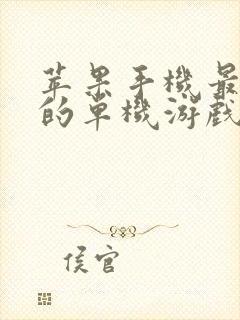 苹果手機最
的单機游戲
侯官